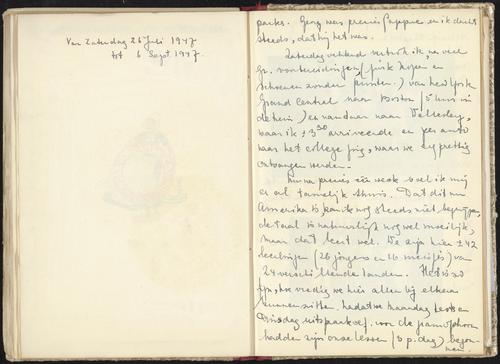 Van Zaterdag 26 Juli 1947
tot 6 Sept. 1947.
parles. Geng was precies Guppare en ik dacht
steeds, dat hij het was.
Zaterdag ochtend vertrok ik, na veel
voorbereidingen (
schoenen zonder punten.) van New York
Grand Central naar Boston (5 uur in
de trein) en vandaar naar Wellesley,
waar ik ± 3³⁰ arriveerde en per auto
naar het college ging, waar we erg prettig
ontvangen werden.
Nu na precies een week voel ik mij
er al tamelijk thuis. Dat dit nu
Amerika is kan ik nog steeds niet begrijpen,
de taal is natuurlijk nog wel moeilijk,
maar dat leert wel. We zijn hier ± 42
leerlingen (26 jongens en 16 meisjes) van
24 verschillende landen. Het is zo
fijn, hoe vredig we hier allen bij elkaar
kunnen zitten. Nadat we Maandag test en
Dinsdag uitspraak voor de gramophoon
hadden zijn onze lessen (3 p. dag) begon
nen.